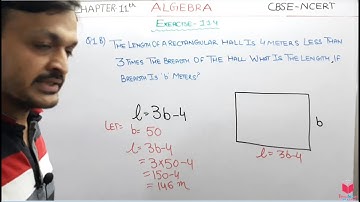 CHAPTER-11th
ALGEBRA
CBSE-NCERT
EXERCISE-11.4
Q.1.(B) THE LENGTH OF A RECTANGULAR HALL IS 4 METERS LESS THAN
3 TIMES THE BREADTH OF THE HALL. WHAT IS THE LENGTH, IF
BREADTH IS 'b' METERS?
l = 3b-4
LET:- b = 50
l = 3b-4
= 3×50-4
= 150-4
= 146 m
b
l = 3b-4